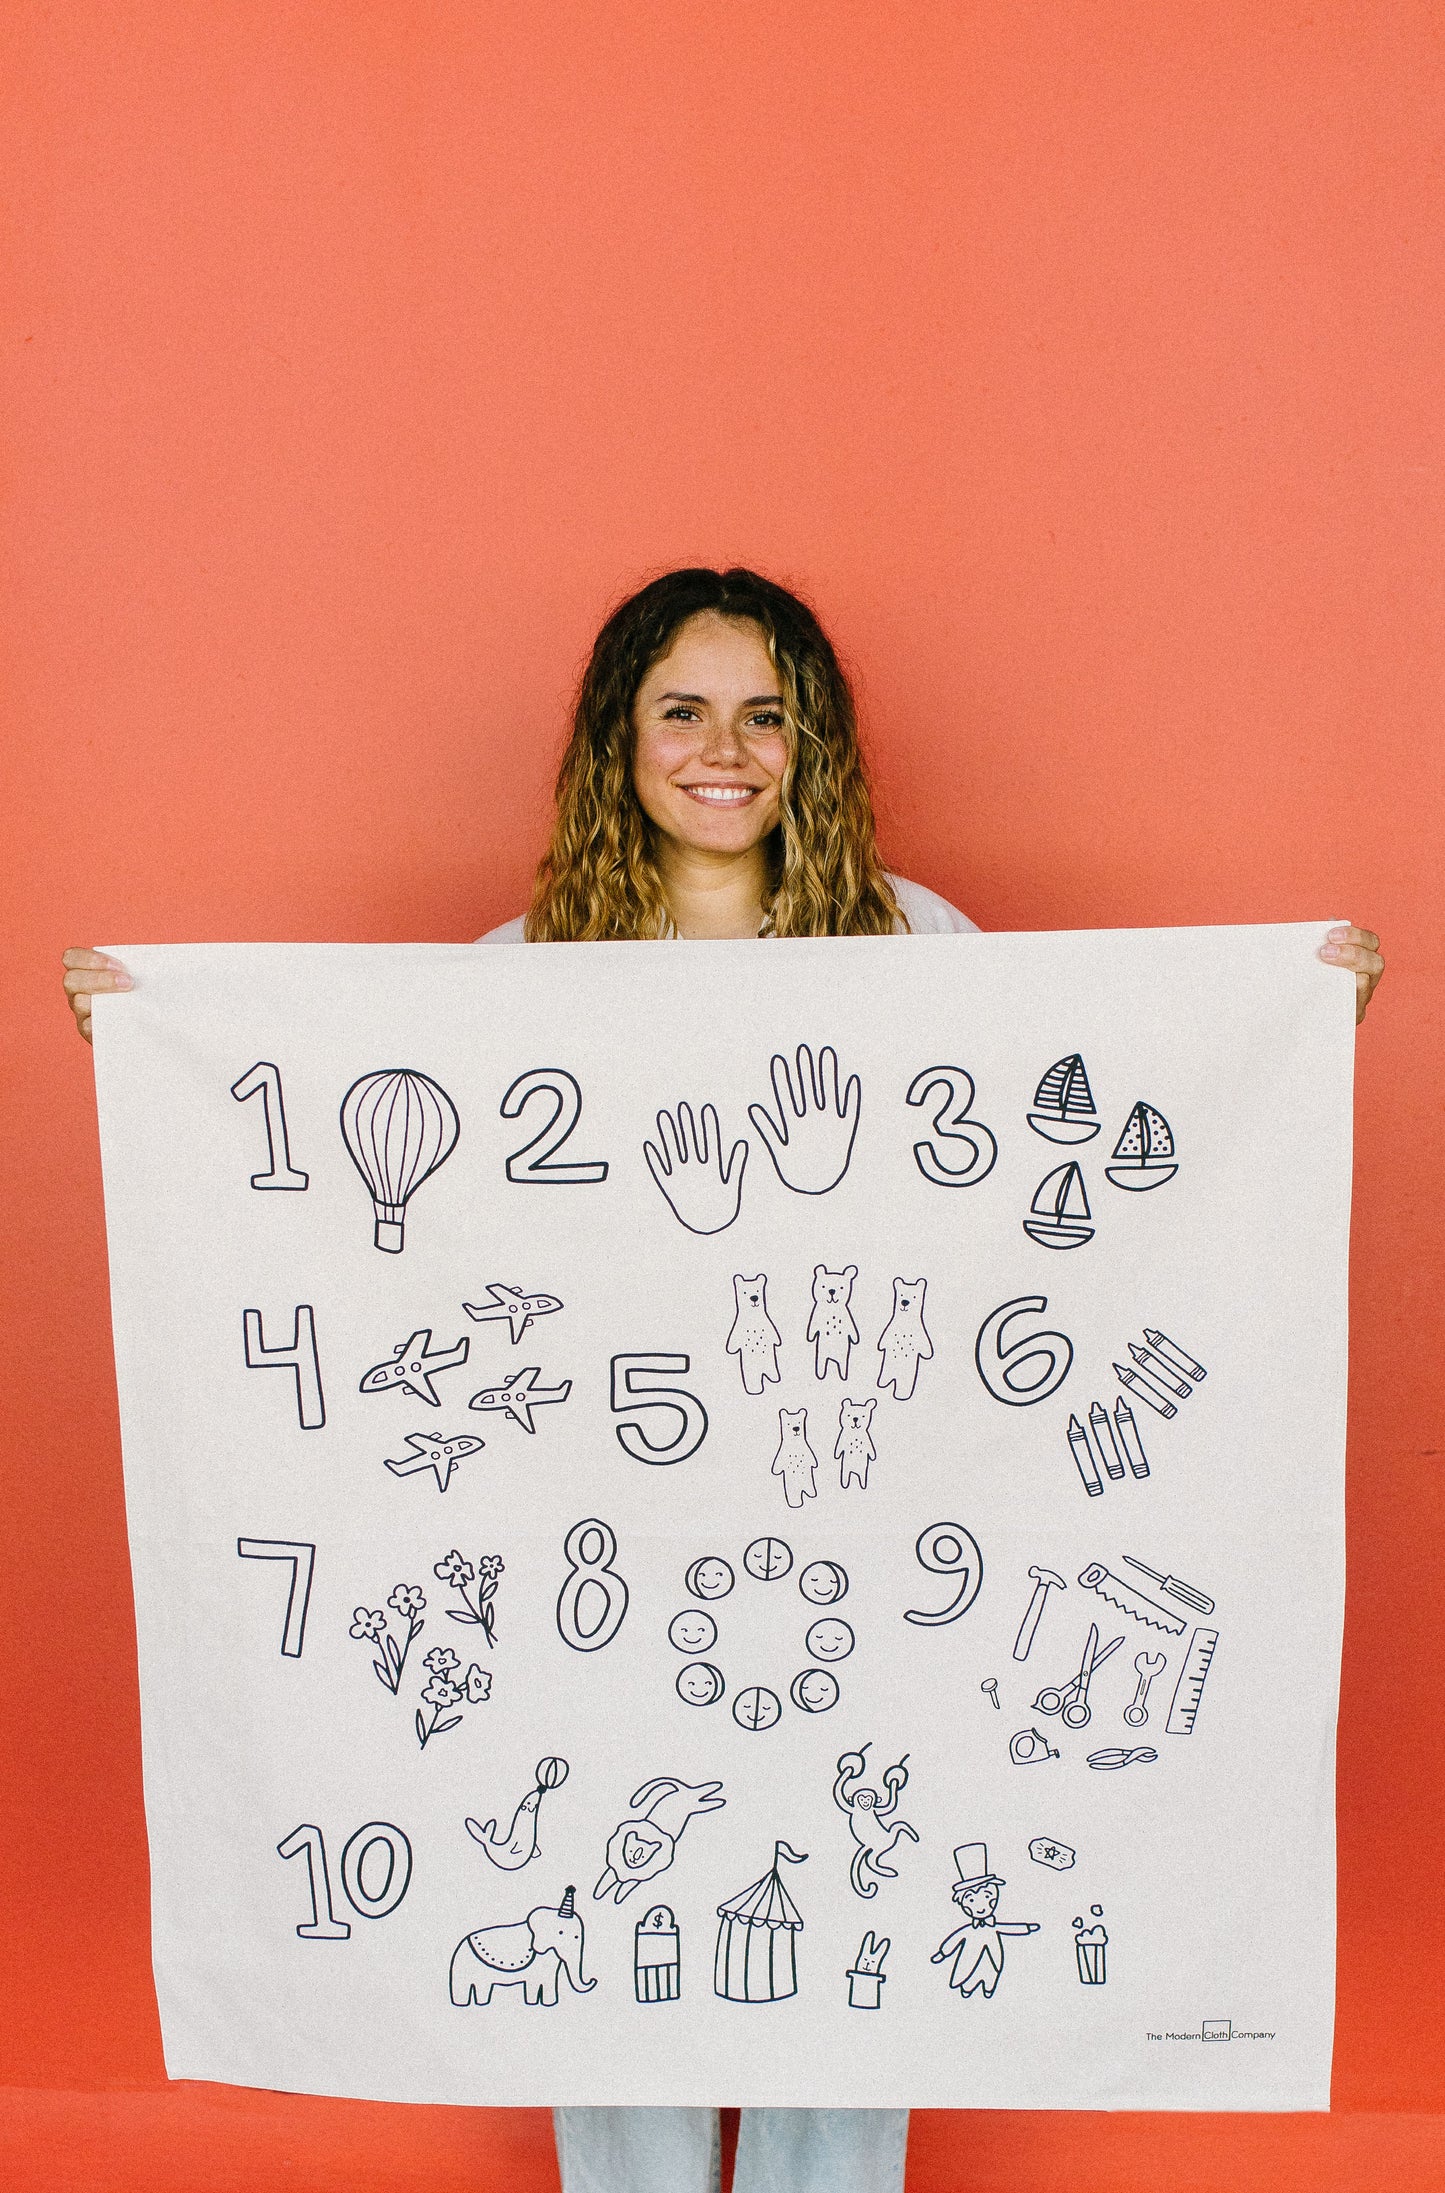 1 2 3
4 5 6
7 8 9
10
$
The Modern Cloth Company